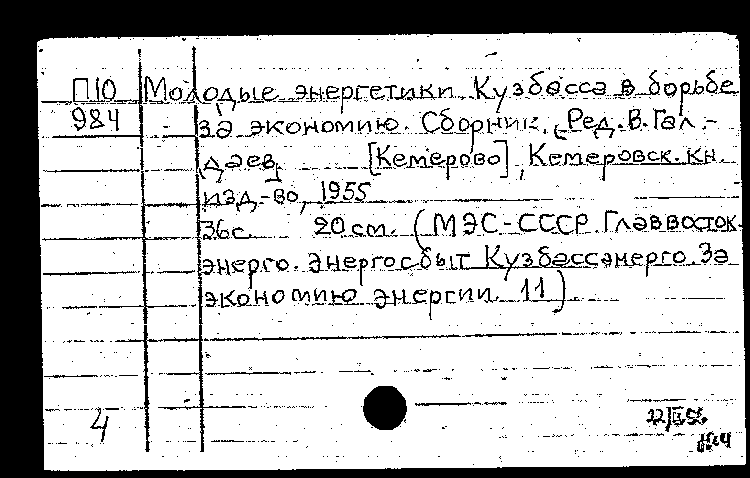 П10 Молодые энергетики Кузбасса в борьбе
984 за экономию. Сборник. (Ред. В. Гал-
даев. [Кемерово], Кемеровск. кн.
изд-во, 1955
36с. 20 см. (МЭС-СССР. Главвосток-
энерго. Энергосбыт Кузбассэнерго. За
экономию энергии. 11).
4